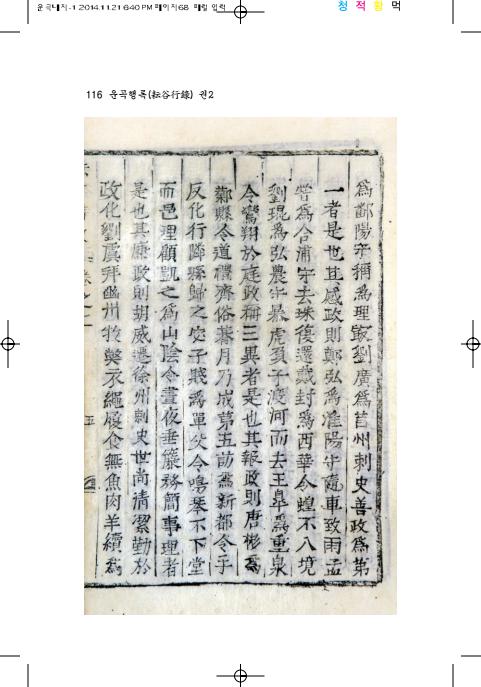 운곡내지-1 2014.11.21 6:40 PM 페이지68 매일 입력
청 적 황 먹
116 운곡행록(耘谷行錄) 권2
爲鄱陽守稱爲理最劉廣爲莒州刺史善政爲第
一者是也其感政則鄭弘爲淮陽守隨車致雨孟
甞爲合浦守去珠復還戴封爲西華令蝗不入境
劉琨爲弘農守暴虎負子渡河而去王阜爲重泉
令鸞翔於庭政稱三異者是也其報政則唐彬爲
鄴縣令道禮齊俗朞月乃成第五訪爲新都令乎
反化行隣縣歸之宓子賤爲單父令鳴琴不下堂
而邑理顧凱之爲山陰令晝夜垂簾務簡事理者
是也其廉政則胡威遷徐州刺史世尚淸潔勤於
政化劉虞拜幽州牧獘衣繩履食無魚肉羊續爲
五